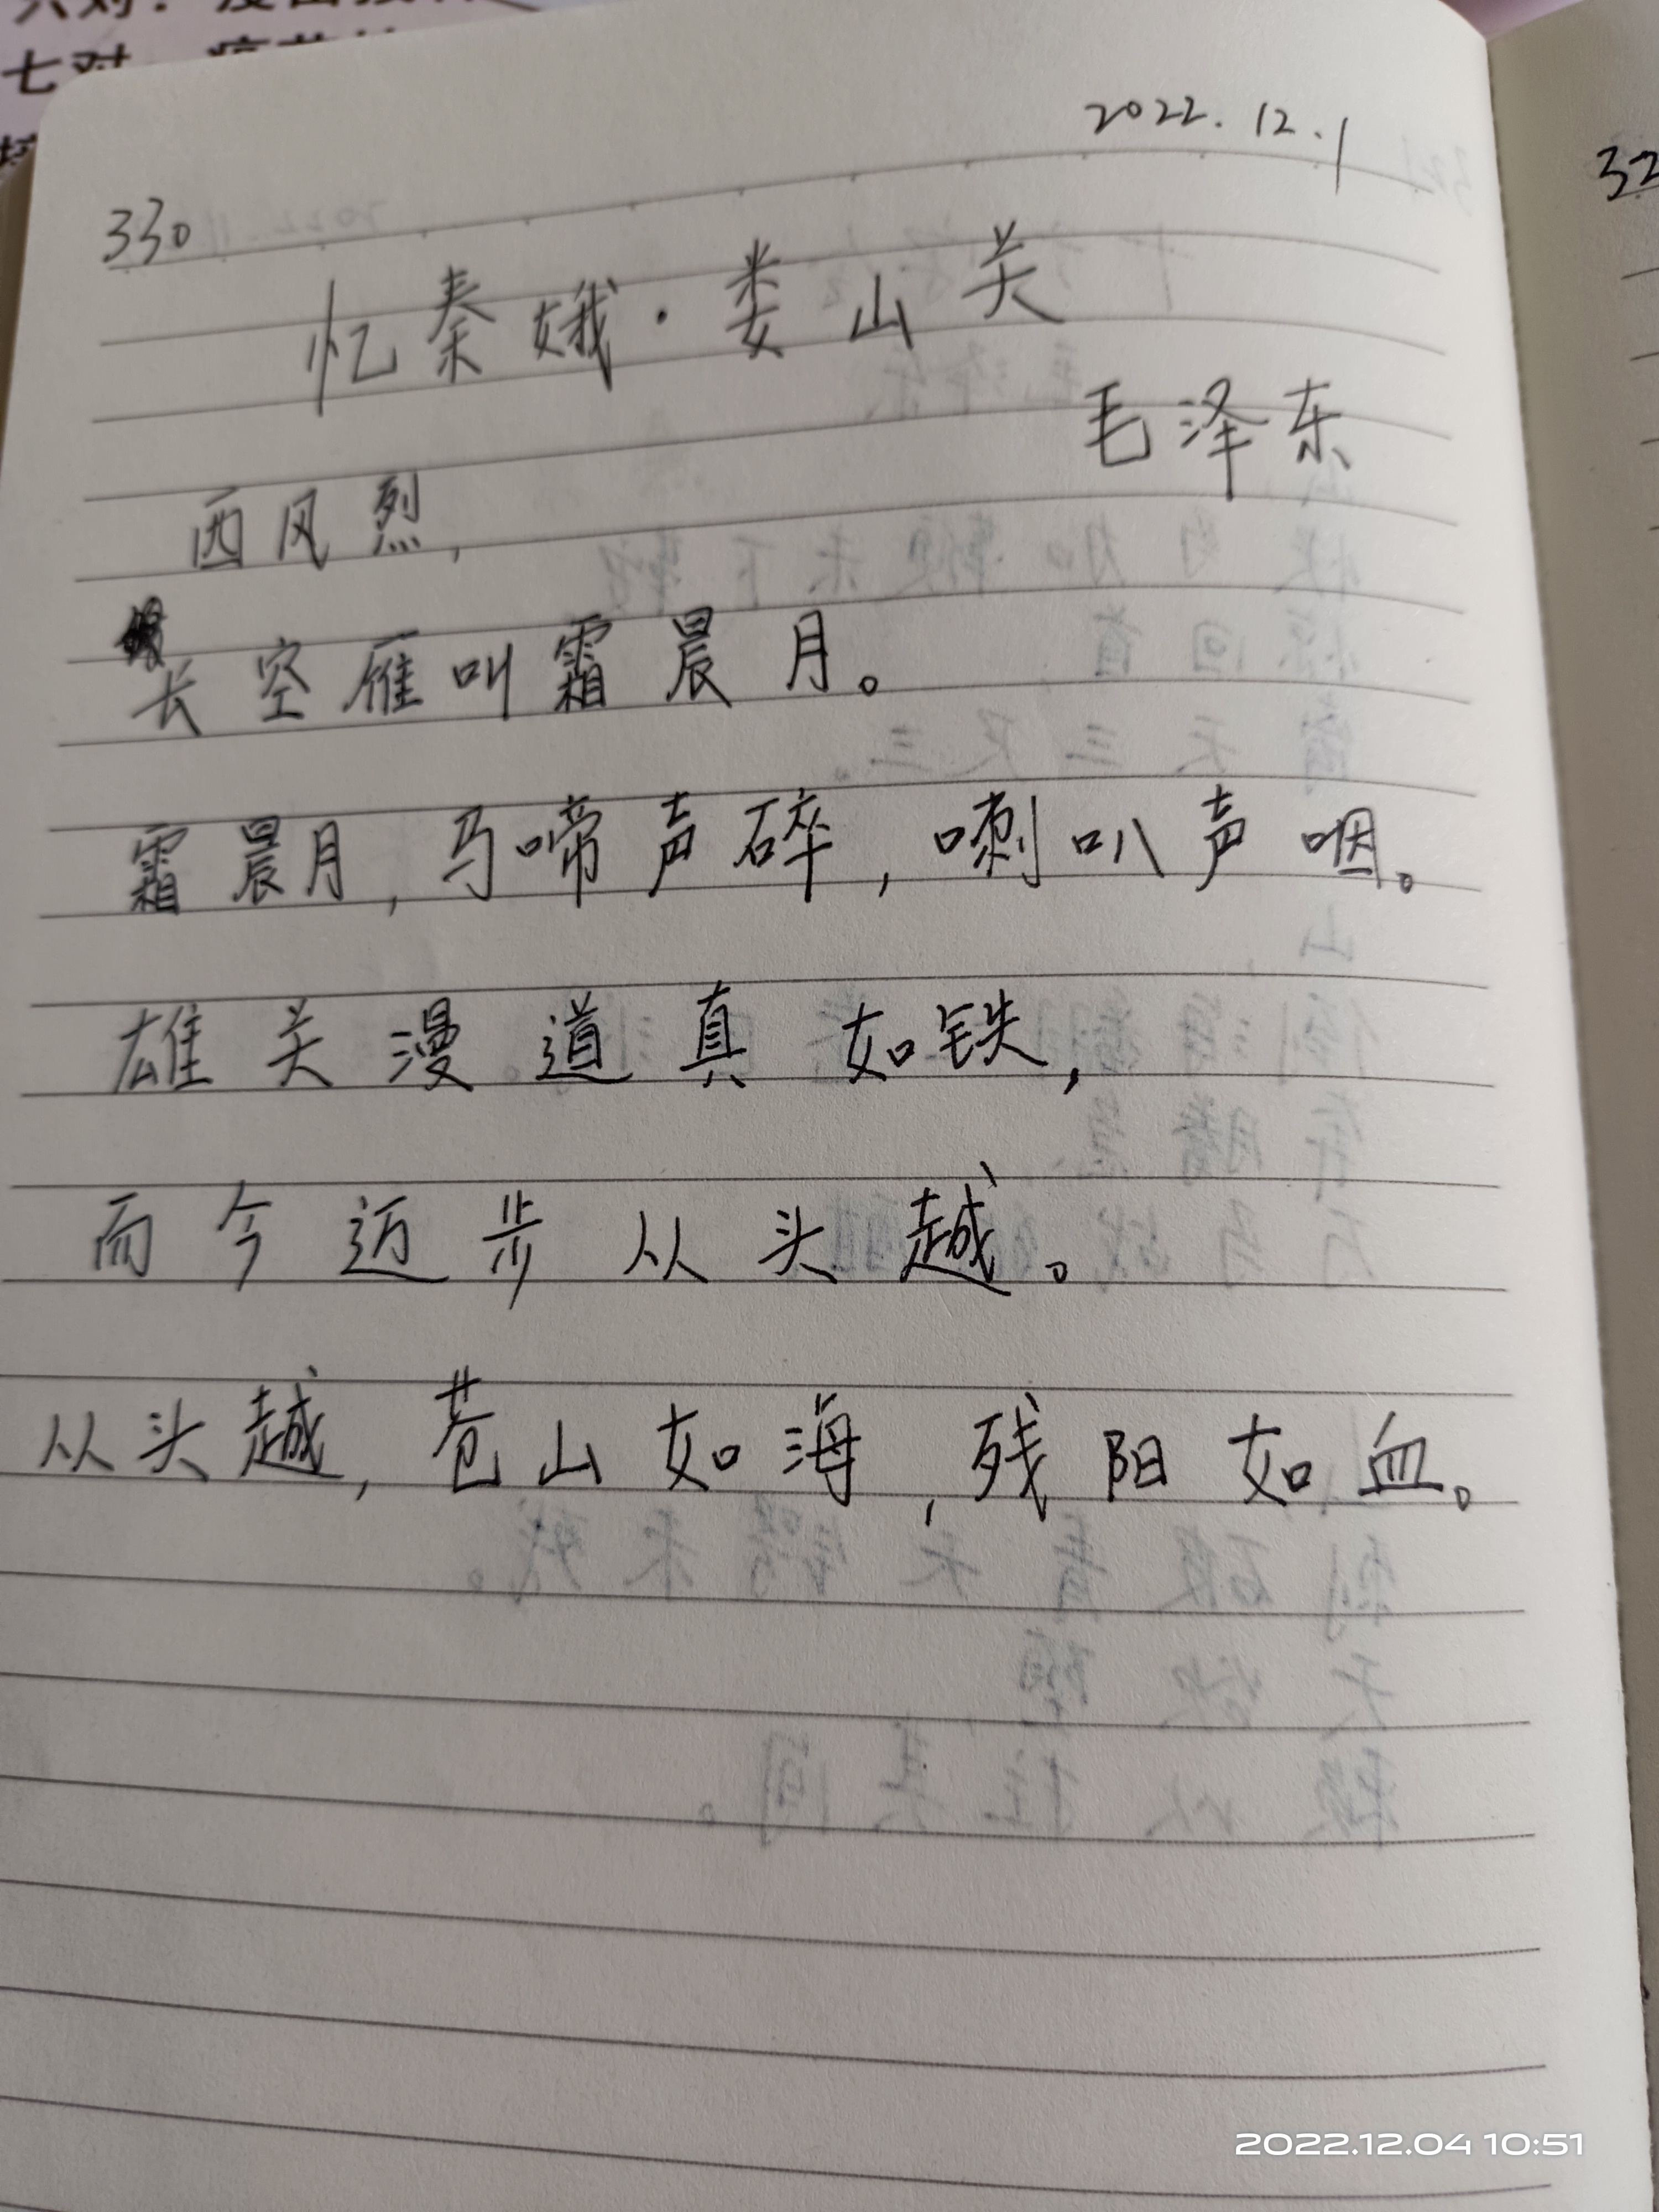 七对:
2022.12.1
330
32
忆秦娥·娄山关
毛泽东
西风烈,
长空雁叫霜晨月。
霜晨月,马啼声碎,喇叭声咽。
雄关漫道真如铁,
而今迈步从头越。
从头越,苍山如海,残阳如血。
2022.12.04 10:51